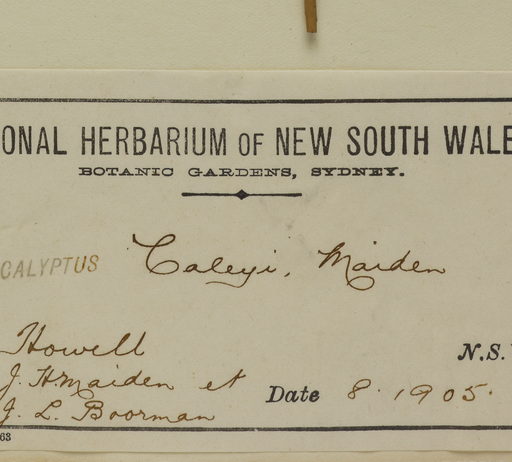 ONAL HERBARIUM OF NEW SOUTH WALE
BOTANIC GARDENS, SYDNEY.
CALYPTUS Caleyi, Maiden
Howell N.S.
J. H. Maiden et
J. L. Boorman Date 8.1905.
63